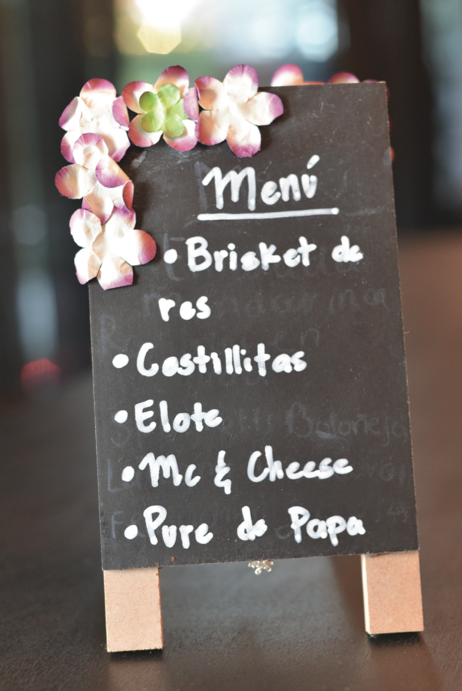 Menú
• Brisket de
res
• Costillitas
• Elote
• Mc & Cheese
• Pure de Papa